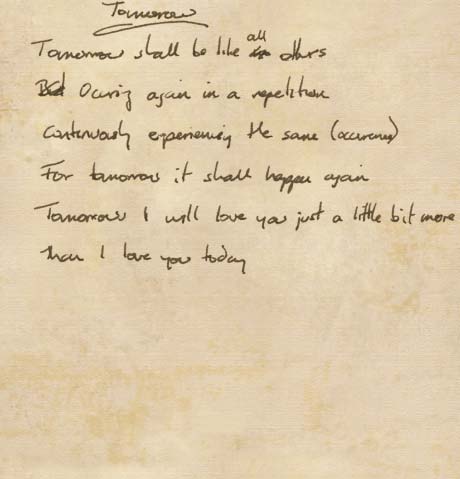 Tomorrow
Tomorrow shall be like all others
Occuring again in a repetition
Continuously experiencing the same (occurences)
For tomorrow it shall happen again
Tomorrow I will love you just a little bit more
than I love you today